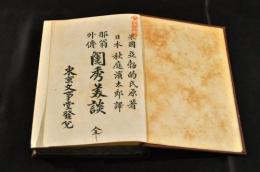 米國亞勃的氏原著
日本秋庭濱太郎譯
那翁外傳
閨秀美談 全
東京文事堂發兌